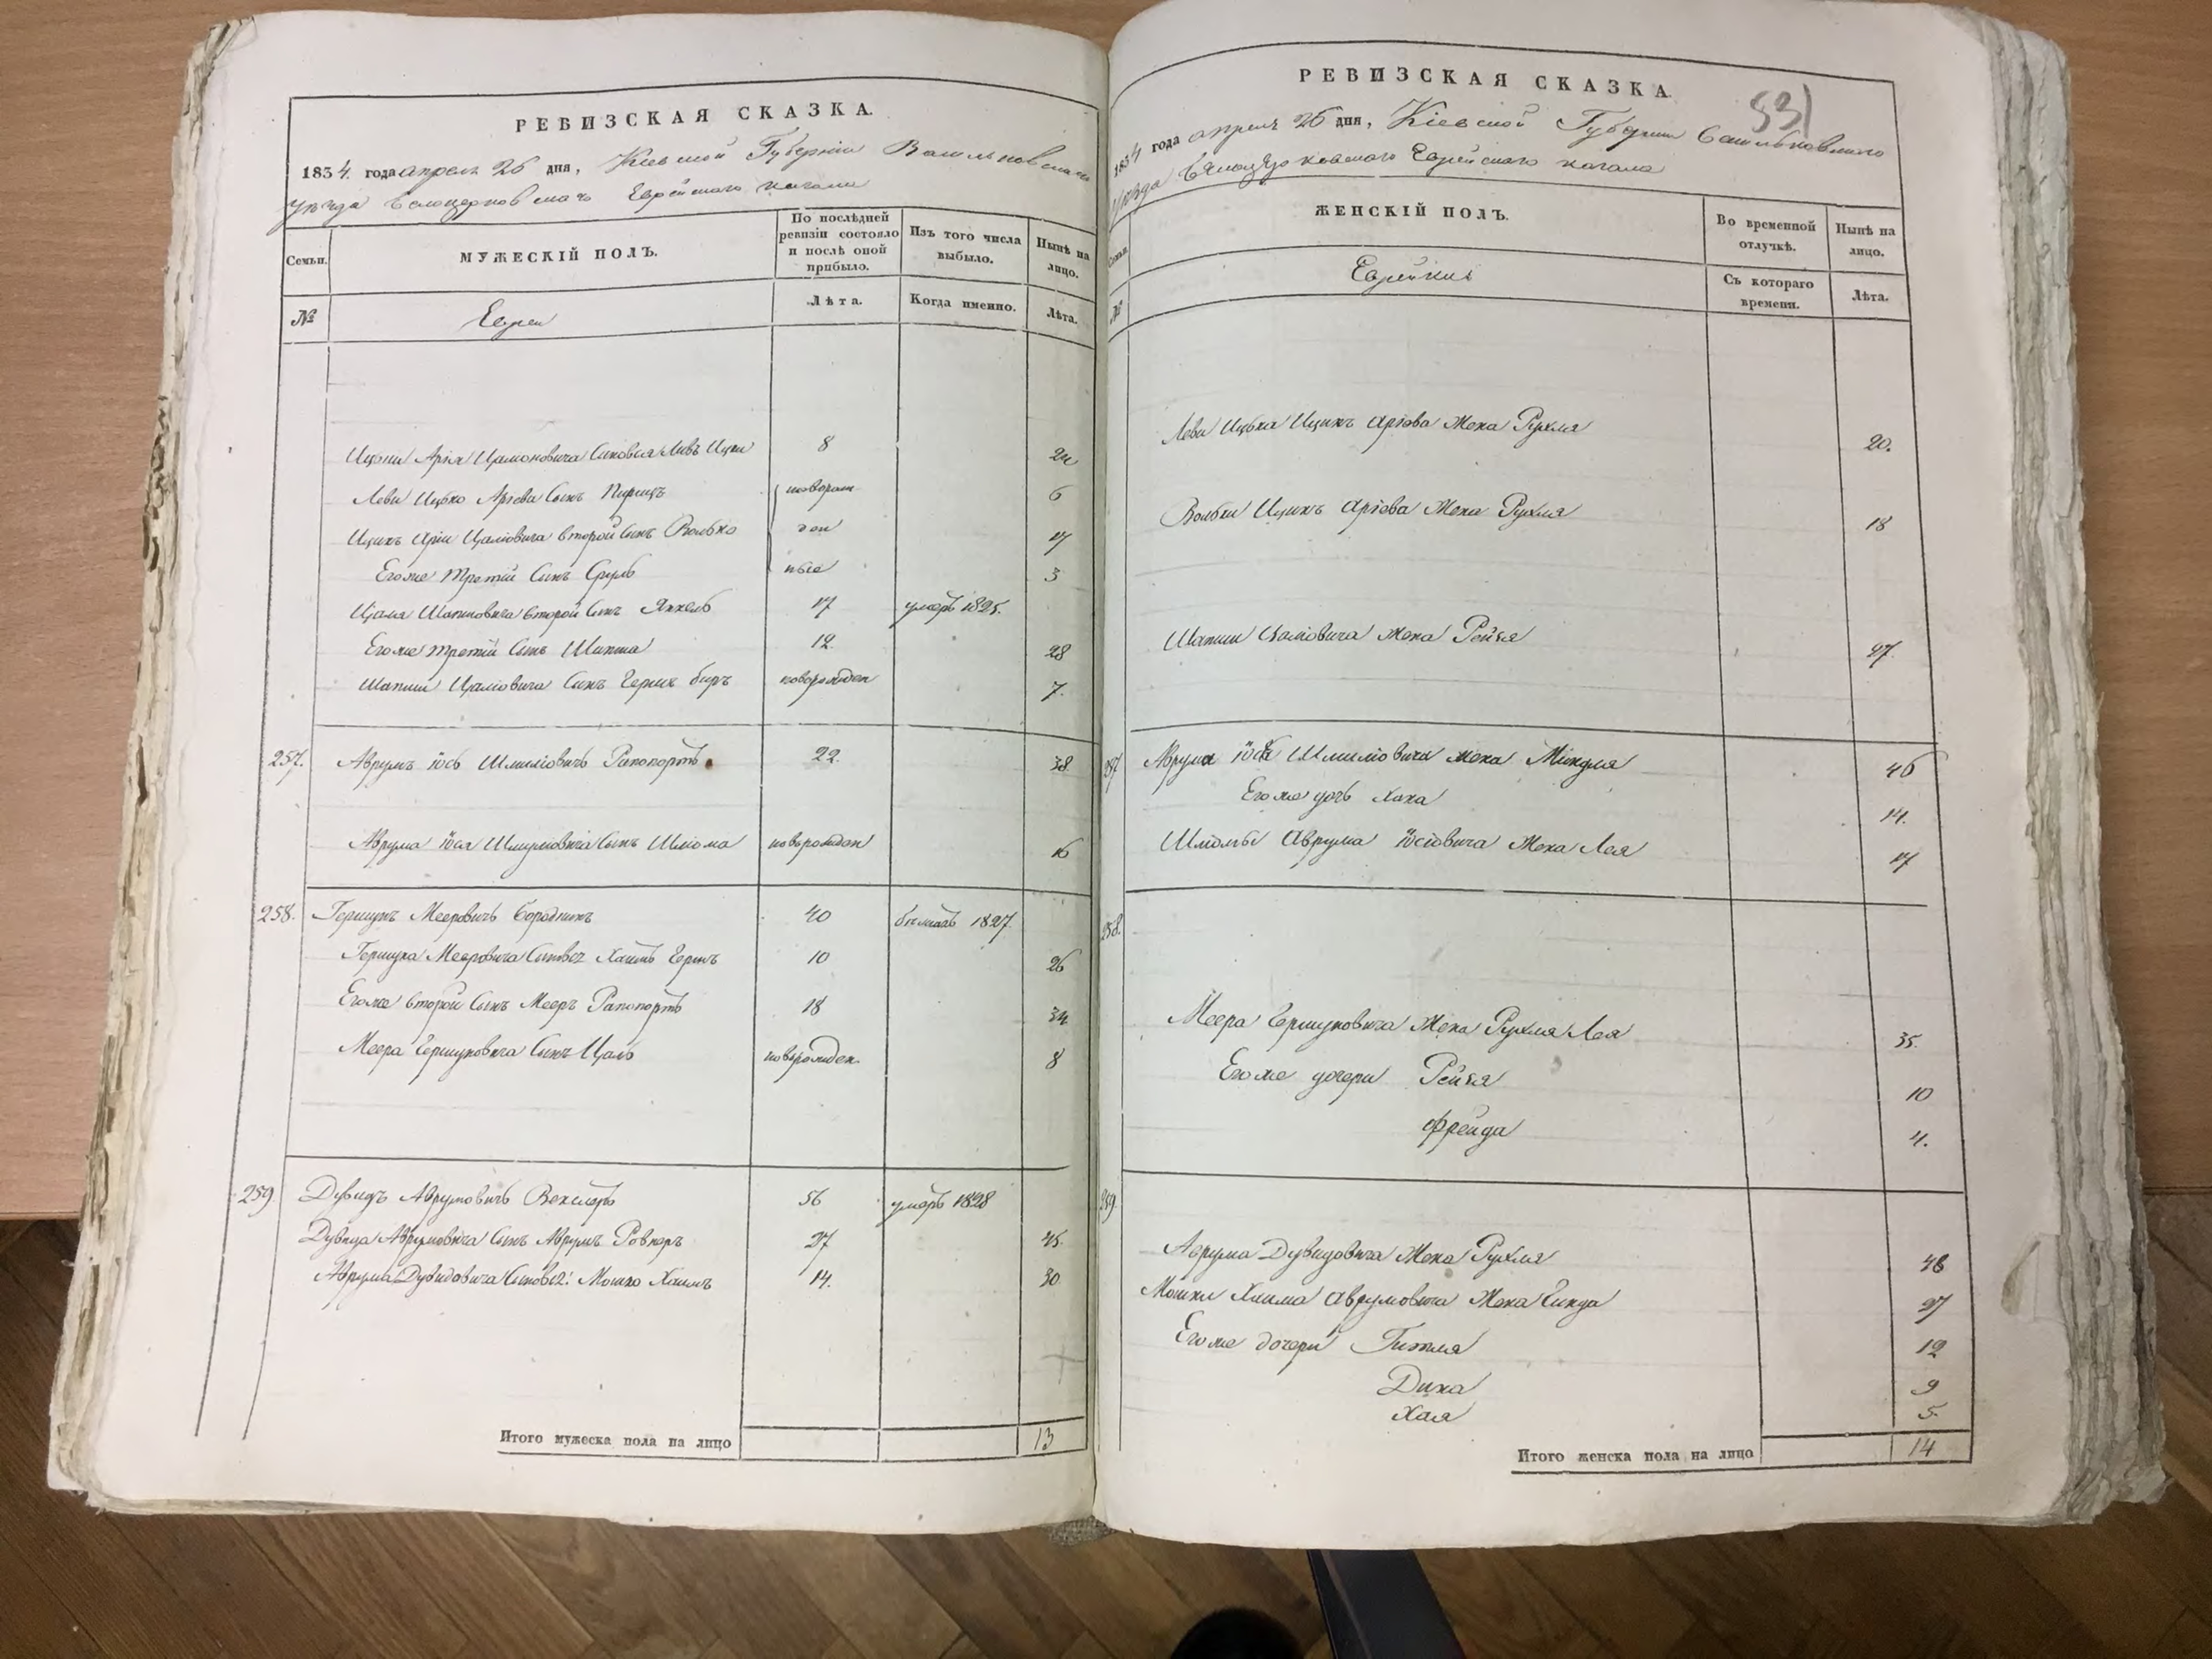 РЕВИЗСКАЯ СКАЗКА.
1834 года апреля 26 дня, Кіевской Губерніи Васильковскаго
уѣзда Белоцерковскаго Еврейскаго кагала
Семьи.
МУЖЕСКІЙ ПОЛЪ.
По послѣдней ревизіи состояло и послѣ оной прибыло.
Изъ того числа выбыло.
Нынѣ на лицо.
№
Евреи
Лѣта.
Когда именно.
Лѣта.
Ицки Арія 8 24
Леви Ицко Аріева Сынъ новорож 6
Ицикъ Арія второй Сынъ Волько ден 17
Егоже третій Сынъ Сруль ные 3
второй Сынъ Янкель 17 умеръ 1825.
Егоже третій Сынъ Шапша 12 28
Шапши Цаліовича Сынъ новорожден 7.
257. Аврумъ Іось Шмуліовичъ Рапопортъ 22. 38
Аврума Іося Шмуліовича Сынъ Шліома новорожден 16
258. Гершукъ Мееровичъ Бородникъ 40 1827.
Гершука Мееровича Сыновья Хаимъ Герикъ 10 26
Егоже второй Сынъ Мееръ Рапопортъ 18 34
Меера Гершуковича Сынъ Цаль новорожден. 8
259 Дувидъ Аврумовичъ Векслеръ 56 умеръ 1828
Дувида Аврумовича Сынъ Аврумъ Ровнеръ 27 45.
Аврума Дувидовича Сыновья: Мошко Хаимъ 14. 30
Итого мужеска пола на лицо 13
РЕВИЗСКАЯ СКАЗКА.
531
1834 года апреля 26 дня, Кіевской Губерніи Васильковскаго
уѣзда Бѣлоцерковскаго Еврейскаго кагала
Семьи.
ЖЕНСКІЙ ПОЛЪ.
Во временной отлучкѣ.
Нынѣ на лицо.
№
Еврейки
Съ котораго времени.
Лѣта.
Леви Ицька Ицикъ Аріова Жена Рухля 20.
Вольки Ицикъ Аріова Жена Рухля 18
Шапши Цаліовича жена Рейзя 27
257 Аврума Іося Шмуліовича жена Миндля 46
Егоже дочь Хана 14.
Шліомы Аврума Іосіовича Жена Лея 17
258.
Меера Гершуковича Жена Рухля Лея 35.
Егоже дочери Рейзя 10
Фрейда 4.
259
Аврума Дувидовича Жена Рухля 48
Мошки Хаима Аврумовича Жена Гинда 27
Егоже дочери Гитля 12
Дина 9
Хая 5.
Итого женска пола на лицо 14